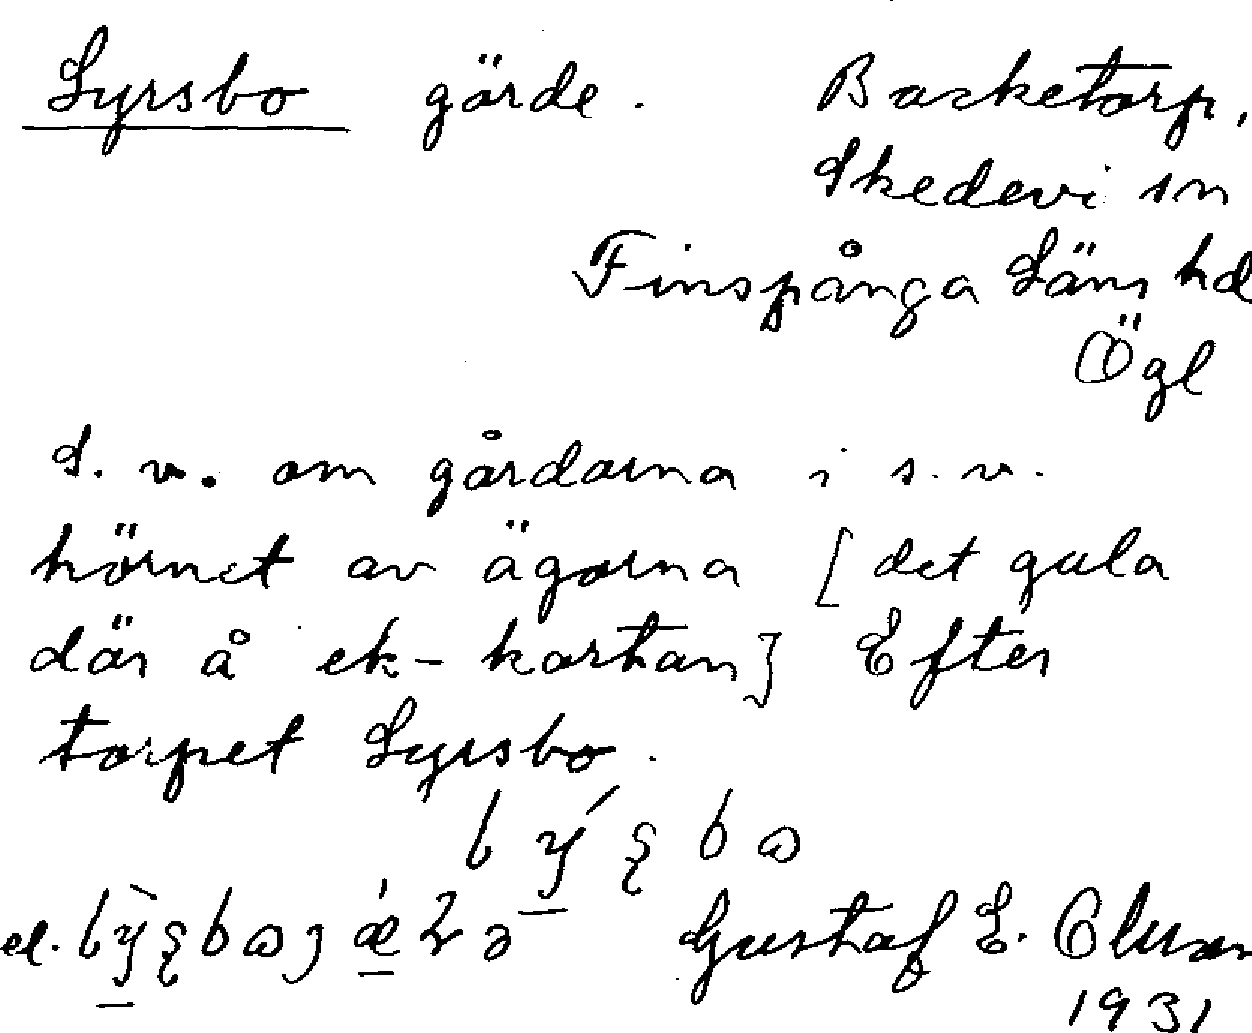 Lyrsbo gärde. Backetorp,
Skedevi sn
Finspånga Läns hd
Ögl
S. v. om gårdarna i s. v.
hörnet av ägorna [det gula
där å ek-kartan] Efter
torpet Lyrsbo.
el. Gustaf E.
1931